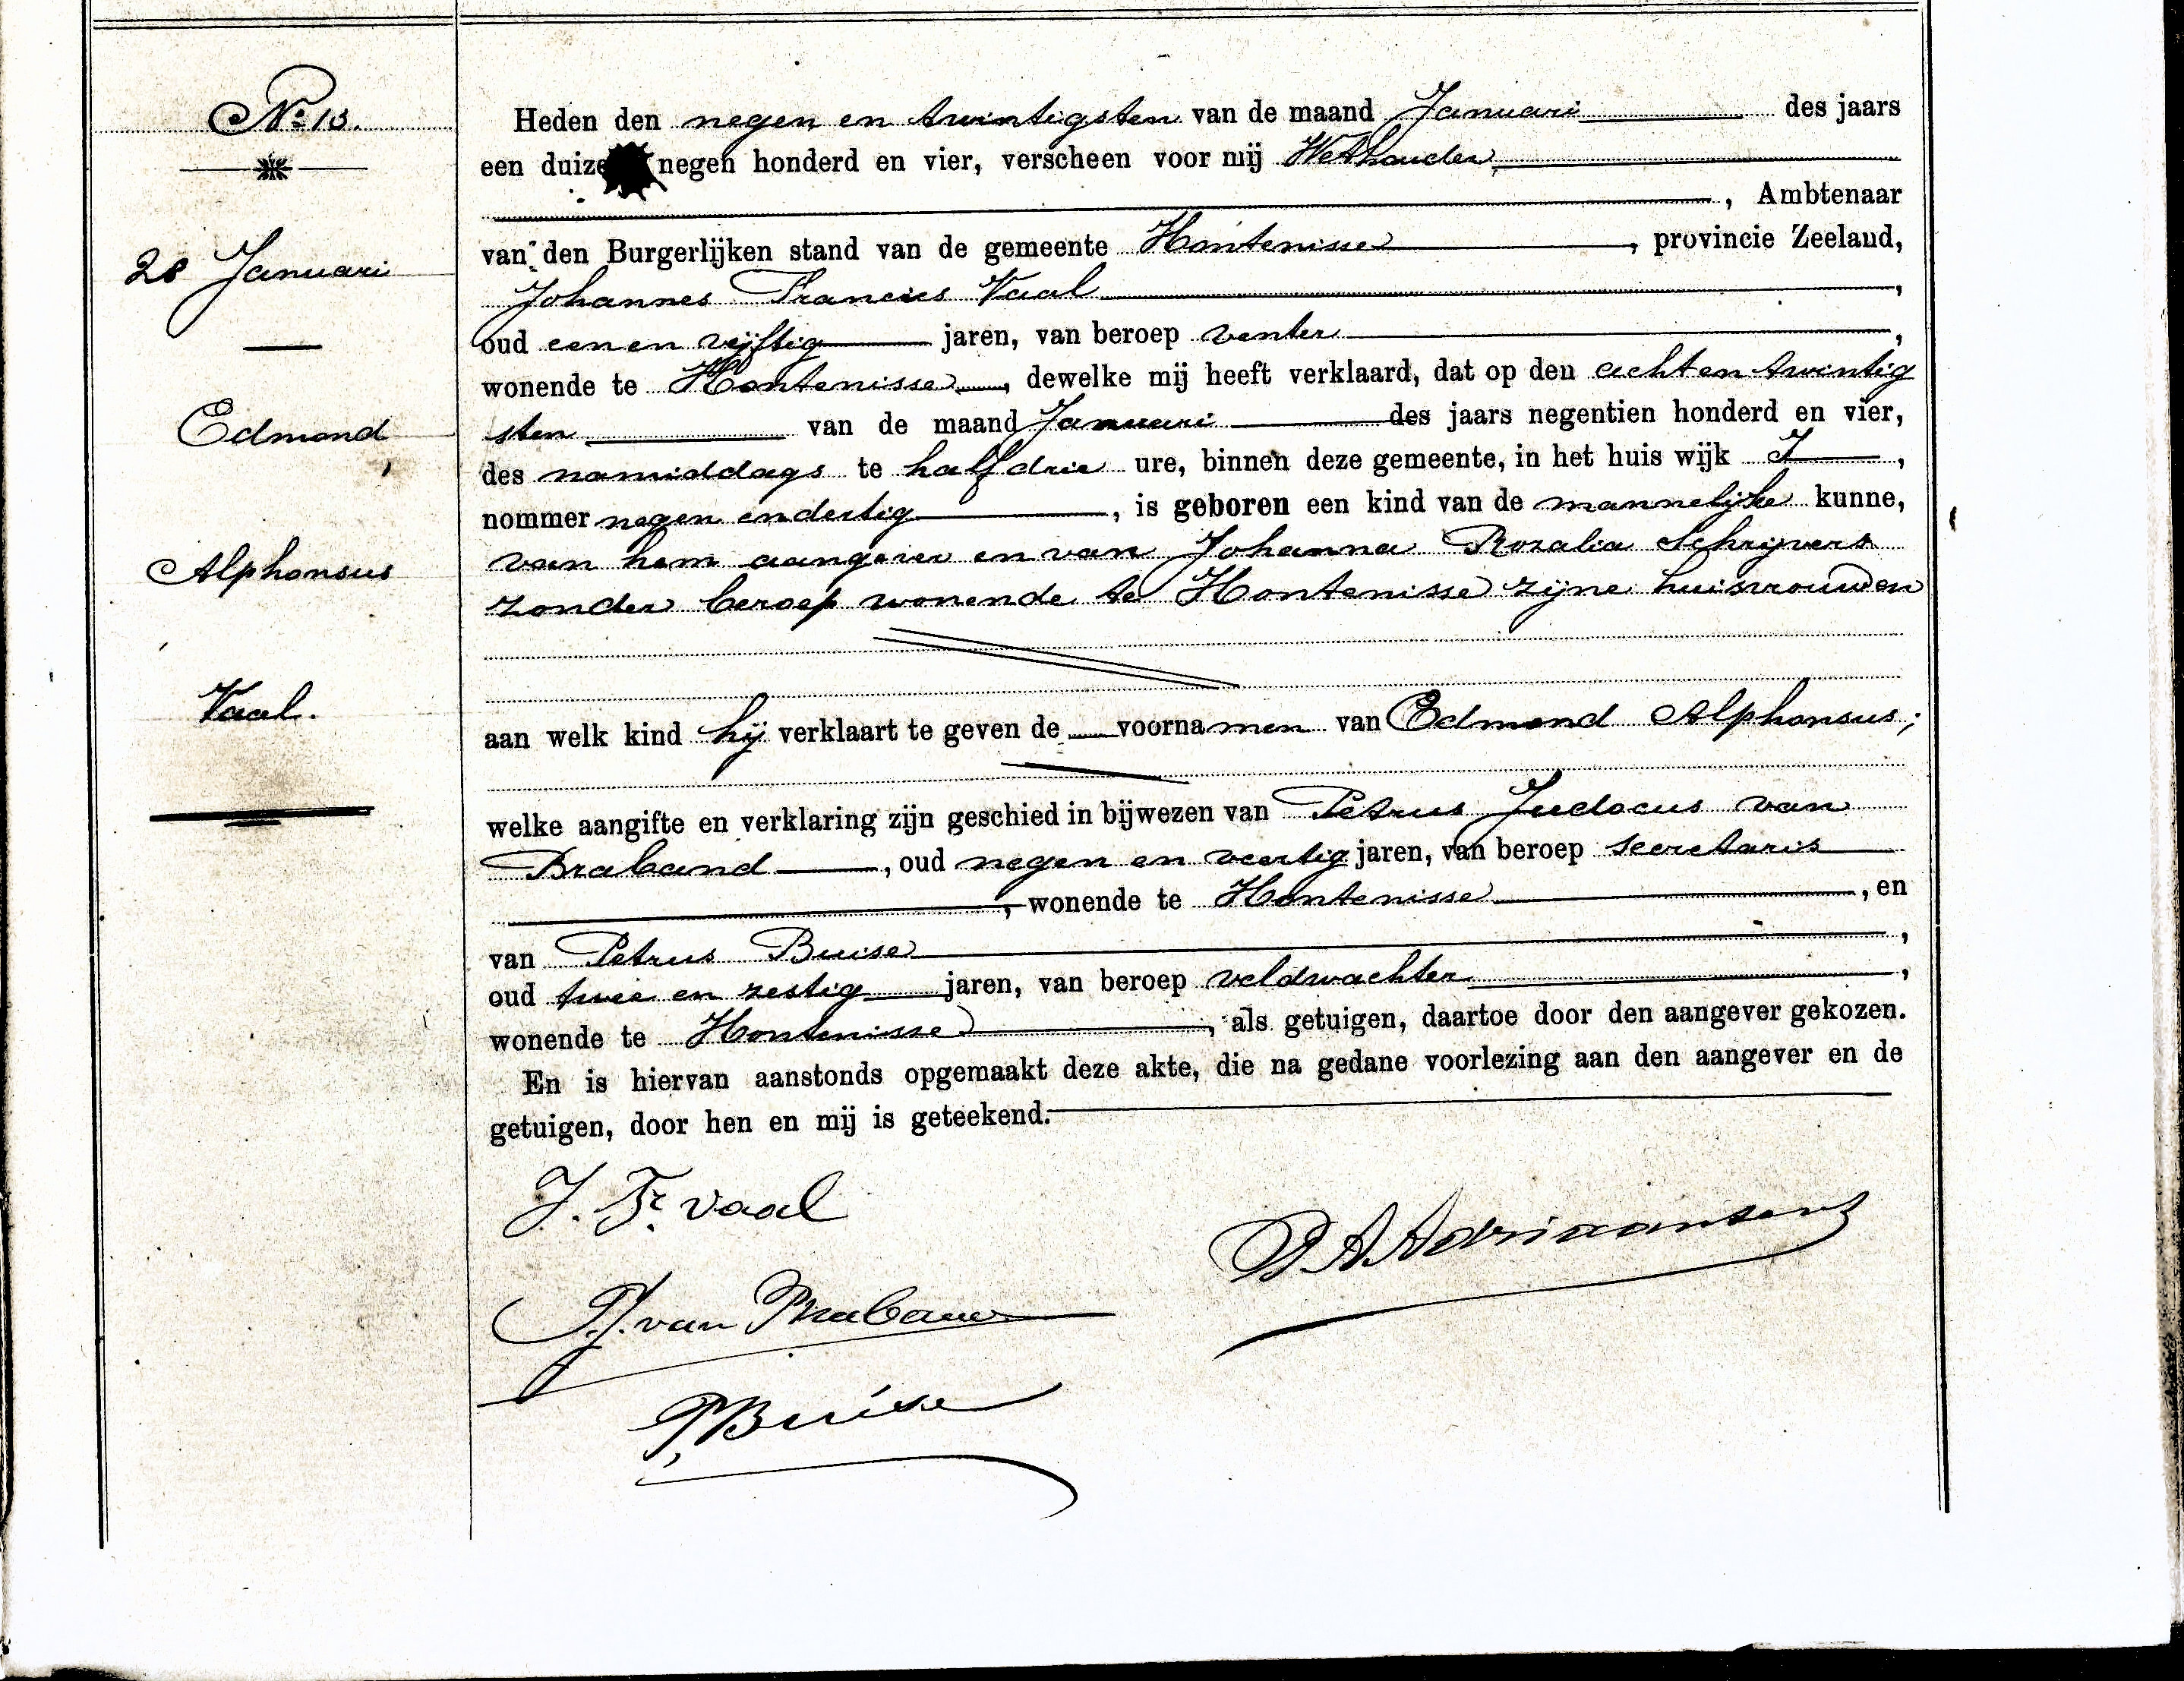 No 13.
28 Januari
Edmond
Alphonsus
Vaal.
Heden den negen en twintigsten van de maand Januari des jaars
een duize negen honderd en vier, verscheen voor mij Wethouder
, Ambtenaar
van den Burgerlijken stand van de gemeente Hontenisse, provincie Zeeland,
Johannes Francies Vaal,
oud een en vijftig jaren, van beroep venter,
wonende te Hontenisse, dewelke mij heeft verklaard, dat op den acht en twintig
sten van de maand Januari des jaars negentien honderd en vier,
des namiddags te half drie ure, binnen deze gemeente, in het huis wijk I,
nommer negen en dertig, is geboren een kind van de mannelijke kunne,
van hem aangever en van Johanna Rozalia Schrijvers
zonder beroep wonende te Hontenisse zijne huisvrouw en
aan welk kind hij verklaart te geven de voornamen van Edmond Alphonsus;
welke aangifte en verklaring zijn geschied in bijwezen van Petrus Judocus van
Braband, oud negen en veertig jaren, van beroep secretaris
, wonende te Hontenisse, en
van Petrus Buise,
oud twee en zestig jaren, van beroep veldwachter,
wonende te Hontenisse, als getuigen, daartoe door den aangever gekozen.
En is hiervan aanstonds opgemaakt deze akte, die na gedane voorlezing aan den aangever en de
getuigen, door hen en mij is geteekend.
J. Fr. Vaal
P A Adriaansens
P.J. van Braband
P. Buise